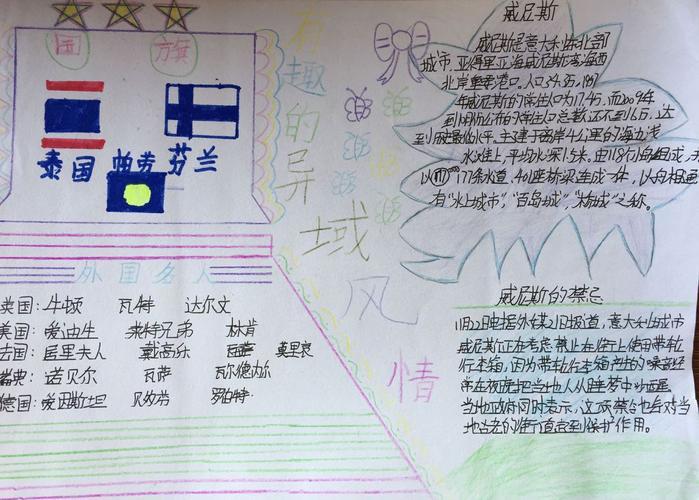 国旗
泰国 帕劳 芬兰
外国名人
英国：牛顿 瓦特 达尔文
美国：爱迪生 莱特兄弟 林肯
法国：居里夫人 戴高乐 莫里哀
瑞典：诺贝尔 瓦萨
德国：爱因斯坦 贝多芬 罗伯特
有趣的异域风情
威尼斯
威尼斯是意大利东北部
城市,亚得里亚海威尼斯湾海西
北岸重要港口。人口34.35,
年威尼斯的常住人口为17.45,而2009年
到
到历史最低水平。主建于离岸4公里的海边浅
水滩上,平均水深1.5米。由118个小岛组成,并
以177条水道、401座桥梁连成一体,以舟相通
有“水上城市”,“百岛城”,“桥城”之称。
威尼斯的禁忌
11月22日电据外媒21日报道,意大利城市
威尼斯正在考虑禁止在街上使用带轮
行李箱,因为带轮行李箱产生的噪音经
常在夜晚把当地人从睡梦中吵醒。
当地政府同时表示,这项禁令也会对当
地古老的街道直到保护作用。